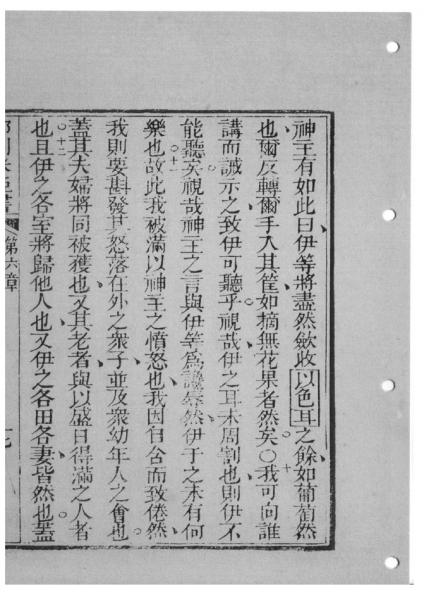 神主有如此曰伊等將盡然斂收以色耳之餘如葡萄然
也爾反轉爾手入其筐如摘無花果者然矣○我可向誰十
講而誡示之致伊可聽乎視哉伊之耳未周割也則伊不
能聽矣視哉神主之言與伊等爲譏辱然伊于之未有何
樂也故此我被滿以神主之憤怒也我因包含而致倦然十一
我則要斟發其怒落在外之衆子並及衆幼年人之會也
蓋其夫婦將同被獲也又其老者與以盛日得滿之人者
也且伊之各室將歸他人也又伊之各田各妻皆然也蓋十二
第六章